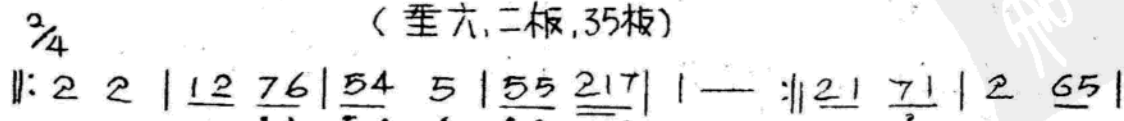 2/4 (重六,二板,35板)
‖: 2 2 | 12 76 | 54 5 | 55 217 | 1 — :‖ 21 71 | 2 65 |